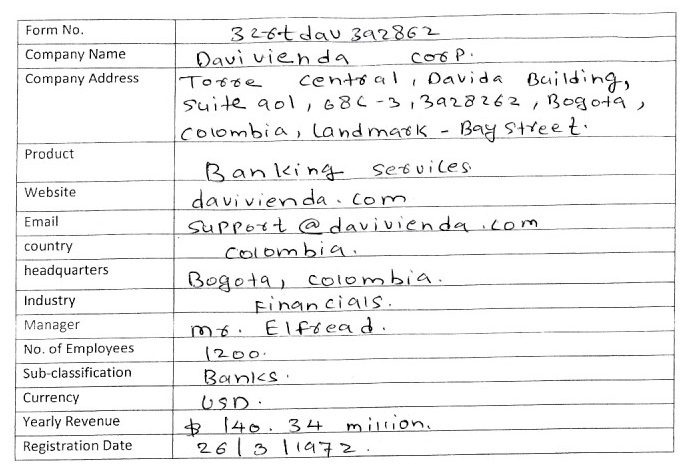 Form No. 326tdav392862
Company Name Davivienda corp.
Company Address Torre central, Davida Building,
suite 901, 68C-3, 3928262, Bogota,
colombia, Landmark - Bay street.
Product Banking services.
Website davivienda.com
Email support@davivienda.com
country colombia.
headquarters Bogota, colombia.
Industry Financials.
Manager mr. Elfread.
No. of Employees 1200.
Sub-classification Banks.
Currency USD.
Yearly Revenue $ 140.34 million.
Registration Date 26/3/1972.